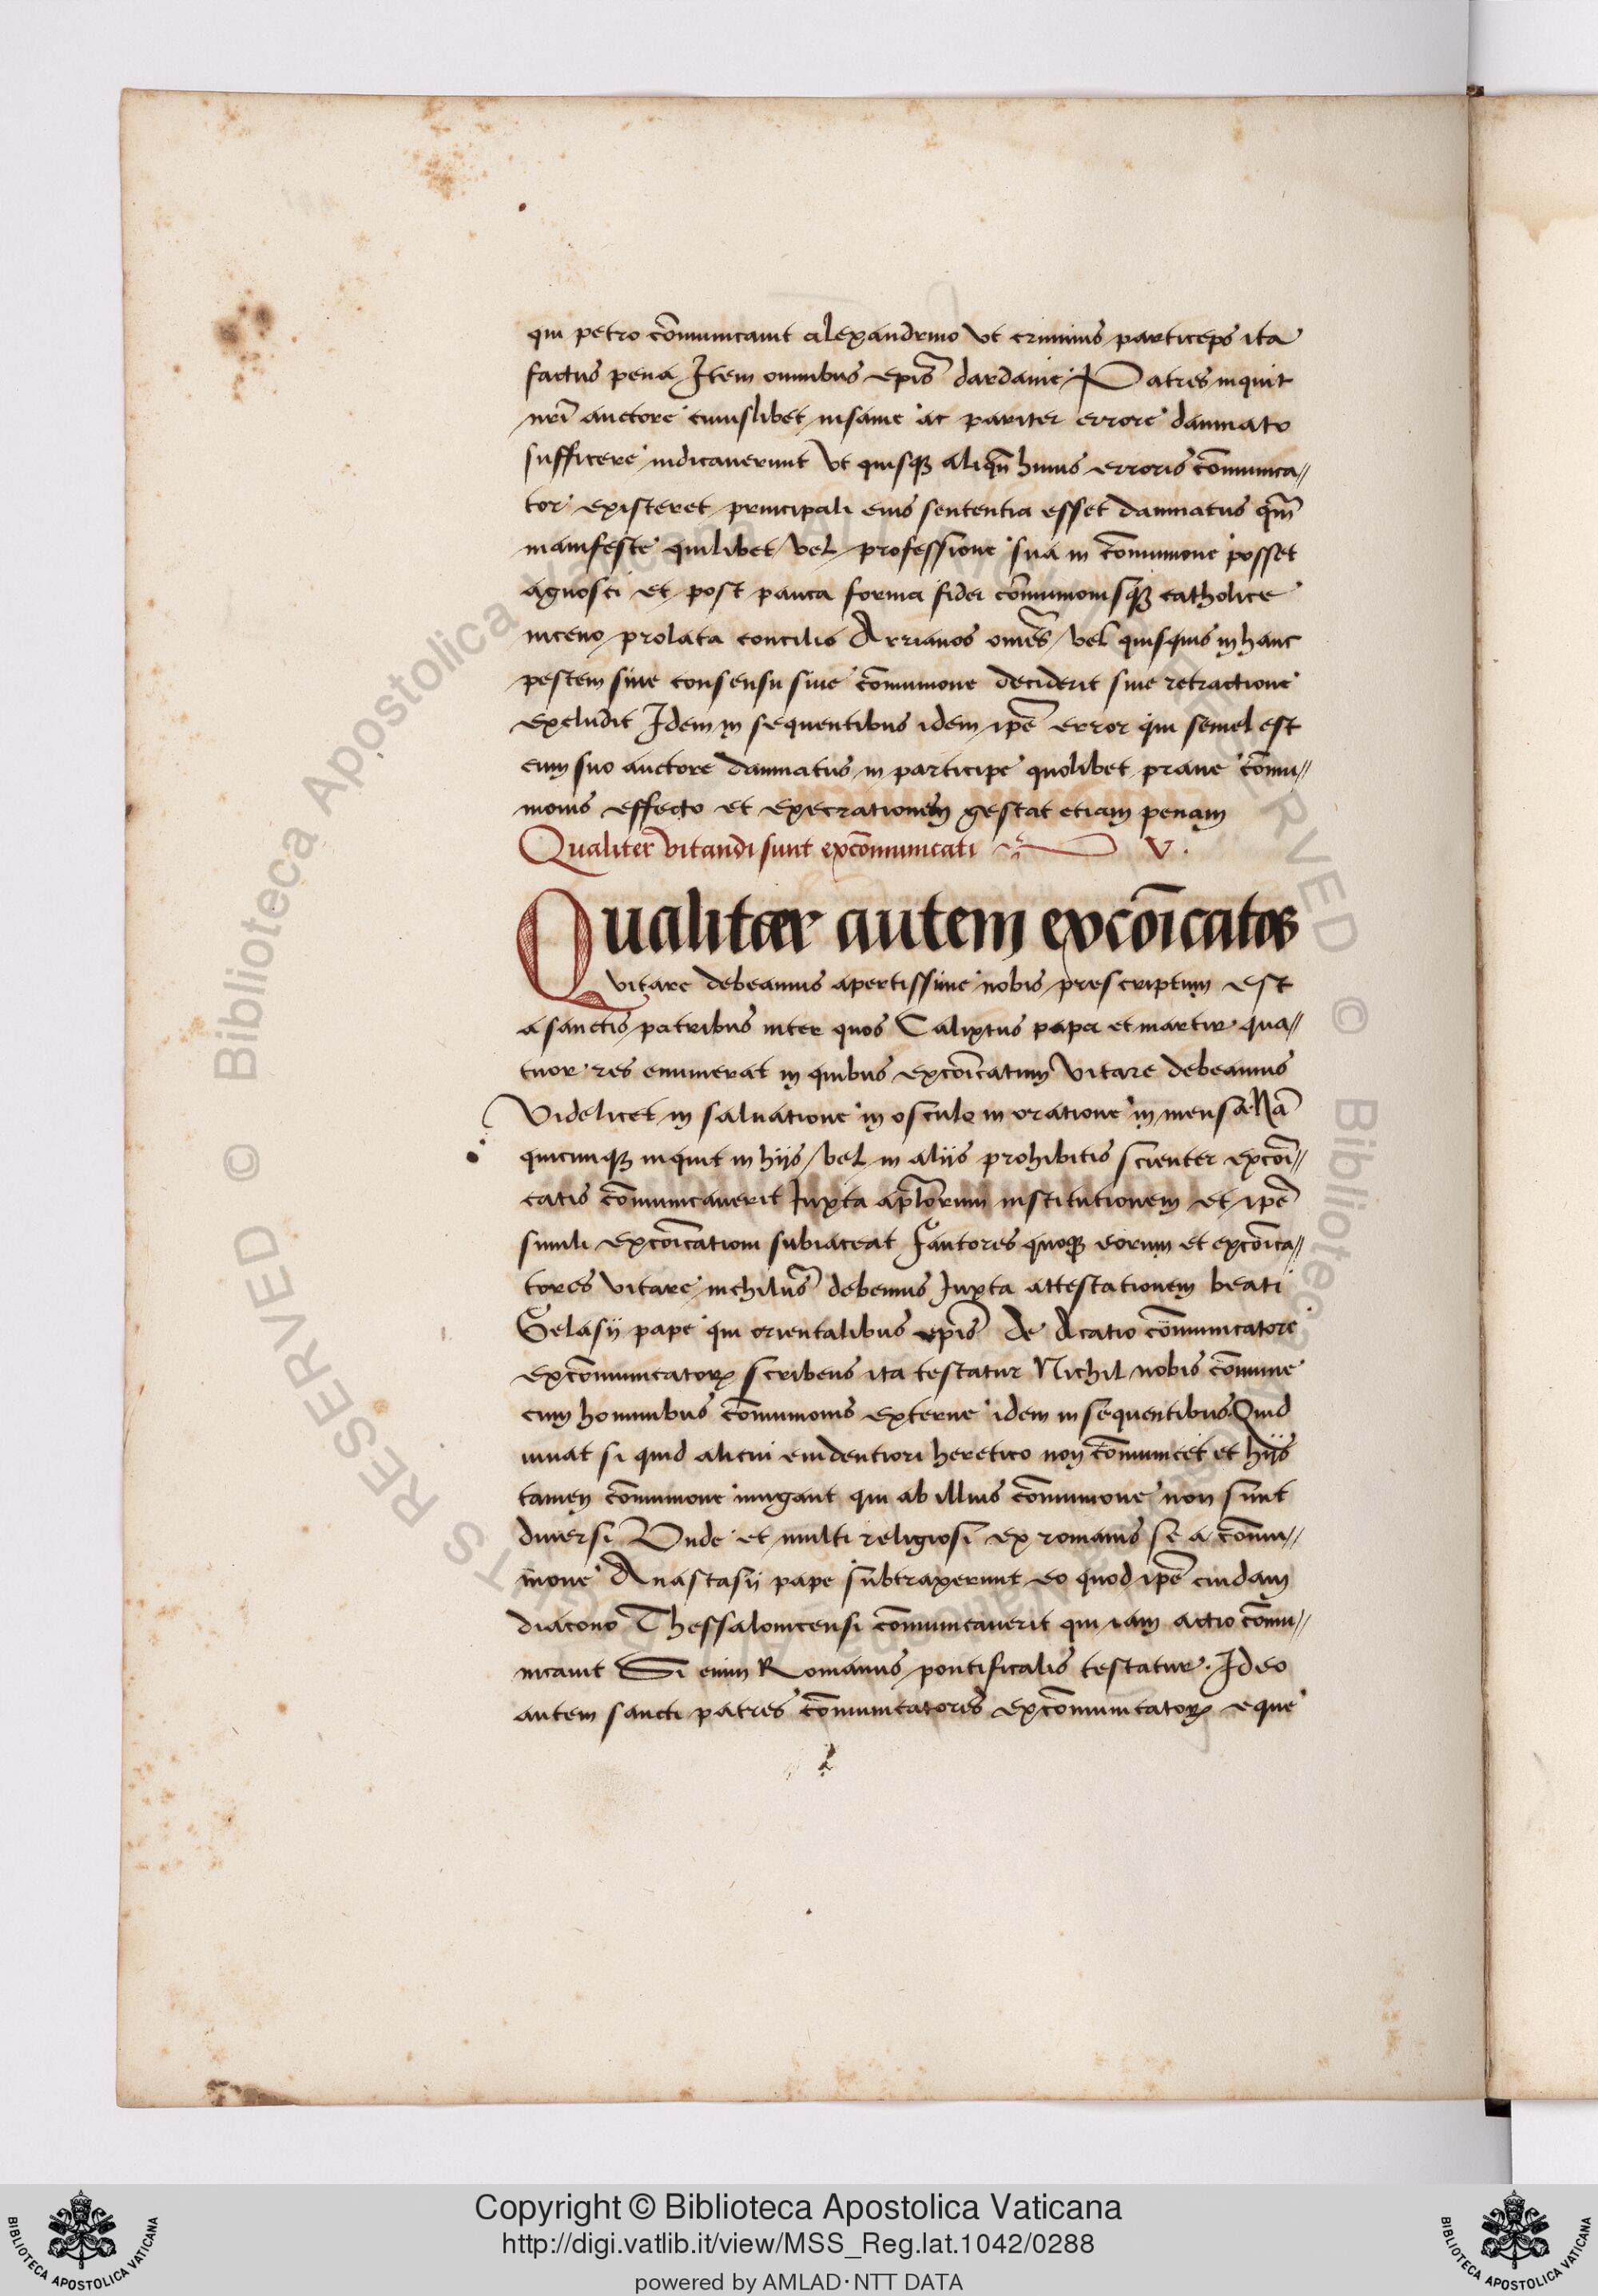 qui petro cōmunicauit alexandrino vt criminis particeps ita
factus pena Item omnibus epīs dardanie Patres inquit
nrī auctore cuiuslibet insanie ac pariter errore damnato
sufficere iudicauerunt vt quisqȝ aliqn̄ huius erroris cōmunica//
tor existeret principali eius sententia esset damnatus qm̄
manifeste quilibet vel professione sua in cōmunione posset
agnosci et post pauca forma fidei cōmunionisqȝ catholice
niceno prolata concilio Arrianos omēs vel quisquis in hanc
pestem siue consensu siue cōmunione deciderit sine retractione
excludit Idem in sequentibus idem ipē error qui semel est
cum suo auctore damnatus in participe quolibet praue cōmu//
nionis effecto et execrationem gestat etiam penam
Qualiter vitandi sunt excōmunicati V.
Qualiter autem excōicatos
vitare debeamus apertissime nobis prescriptum est
a sanctis patribus inter quos Calixtus papa et martir qua//
tuor res enumerat in quibus excōicatum vitare debeamus
Videlicet in saluatione in osculo in oratione in mensa Nā
quicunqȝ inquit in hijs vel in alijs prohibitis scienter excōi//
catis cōmunicauerit Iuxta aplōrum institutionem et ipē
simili excōicationi subiaceat Fautores quoqȝ eorum et excōica//
tores vitare nichilus̄ debemus Iuxta attestationem beati
Gelasij pape qui orientalibus epīs de Acatio cōmunicatore
excōmunicatorꝝ scribens ita testatur Nichil nobis cōmune
cum hominibus cōmunionis externe idem in sequentibus Quid
iuuat si quid alicui euidentiori heretico non cōmunicet et hijs
tamen cōmunione iungant qui ab illius cōmunione non sunt
diuersi Vnde et multi religiosi ex romanis se a cōmu//
nione Anastasij pape subtraxerunt eo quod ipē cuidam
diacono Thessalonicensi cōmunicauerit qui iam actio cōmu//
nicauit Si enim Romanus pontificalis testatur. Ideo
autem sancti patres cōmunicatores excōmunicatorꝝ eque
Copyright © Biblioteca Apostolica Vaticana
http://digi.vatlib.it/view/MSS_Reg.lat.1042/0288
powered by AMLAD·NTT DATA